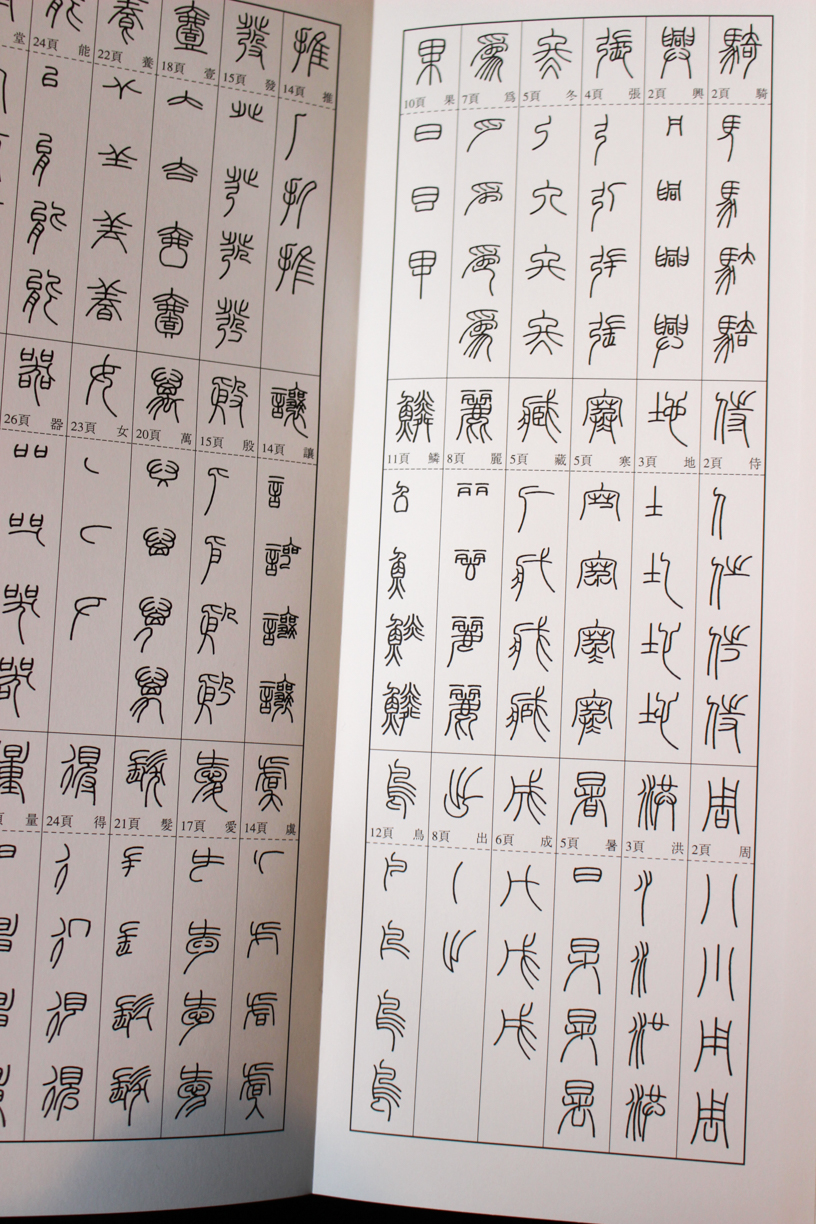 騎 2頁
興 2頁
張 4頁
冬 5頁
爲 7頁
果 10頁
侍 2頁
地 3頁
寒 5頁
藏 5頁
麗 8頁
鱗 11頁
周 2頁
洪 3頁
暑 5頁
成 6頁
出 8頁
鳥 12頁
推 14頁
發 15頁
壹 18頁
養 22頁
能 24頁
堂
讓 14頁
殷 15頁
萬 20頁
女 23頁
器 26頁
虞 14頁
愛 17頁
髮 21頁
得 24頁
量 頁